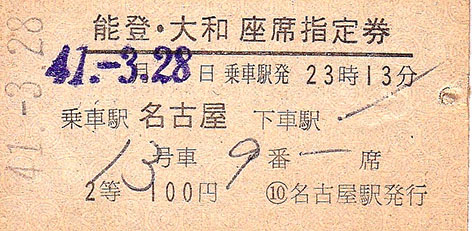 能登・大和 座席指定券
41.-3.28
月 日 乗車駅発 23時13分
乗車駅 名古屋 下車駅
13号車 9番 席
2等 100円 ⑩名古屋駅発行
41-3-28